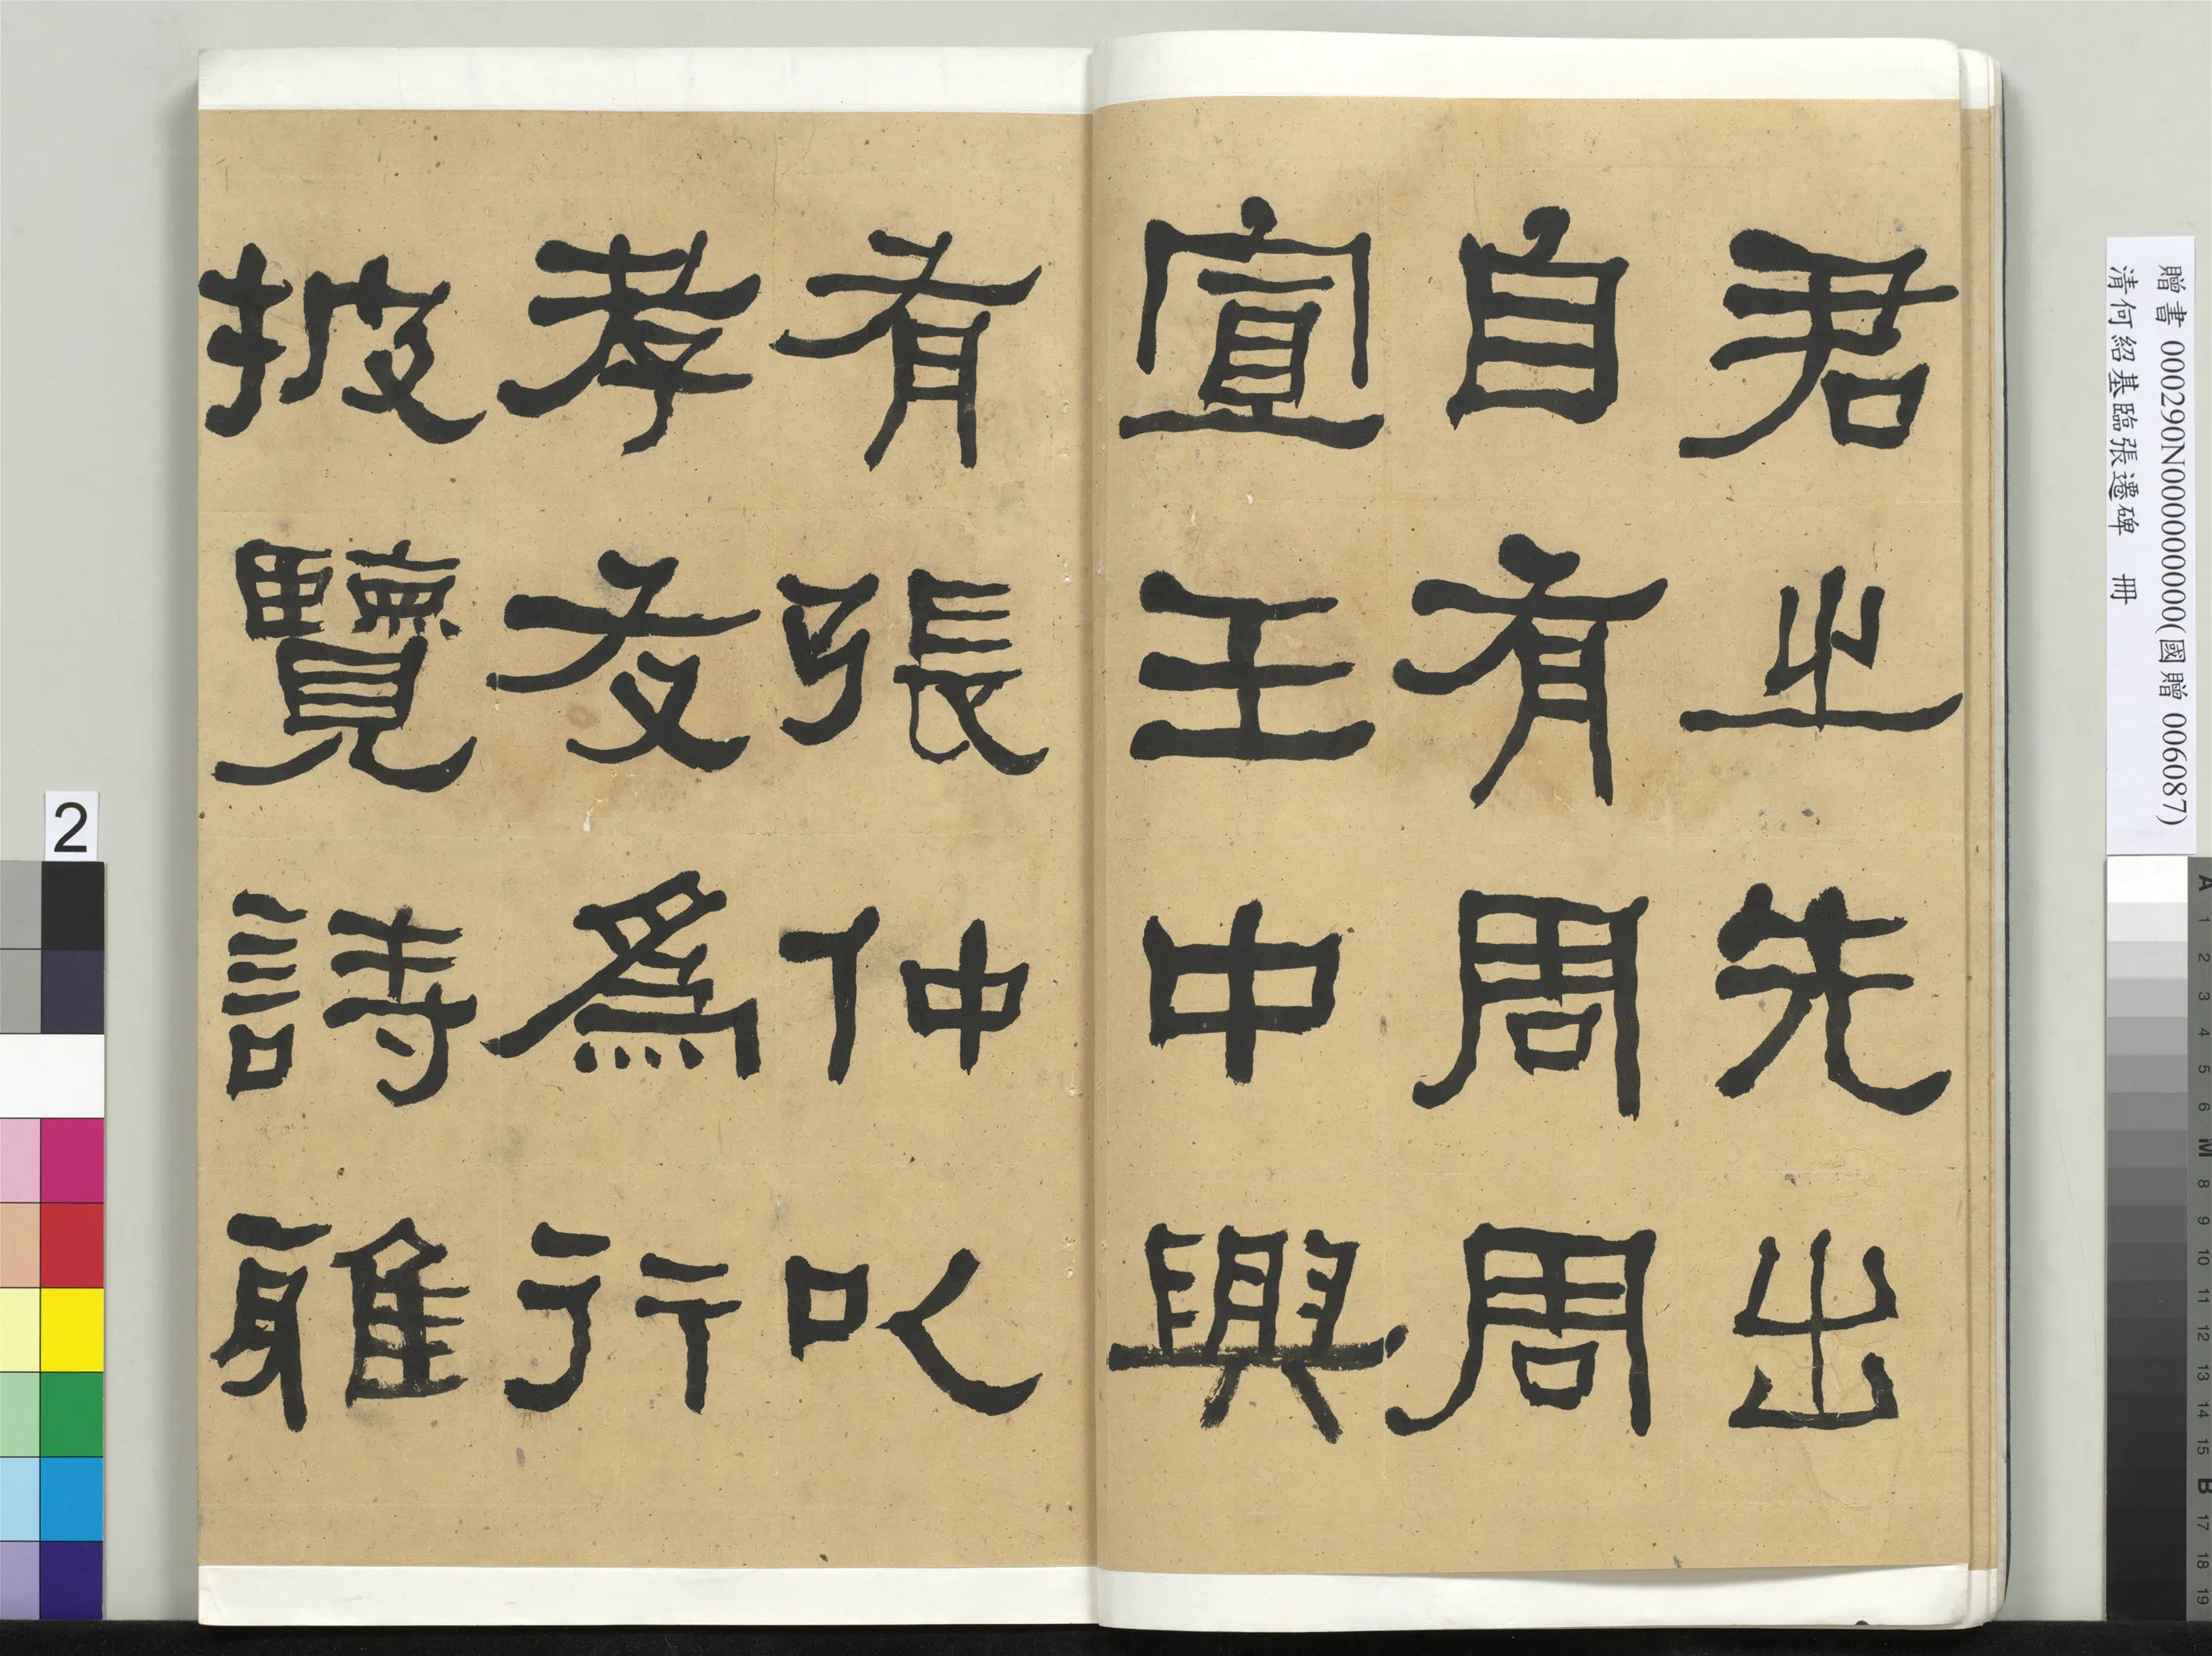 君之先出
自有周周
宣王中興
有張仲以
孝友為行
披覽詩雅
贈書 000290N000000000(國贈 006087)
清何紹基臨張遷碑 冊
2
A 1 2 3 4 5 6 M 8 9 10 11 12 13 14 15 B 17 18 19